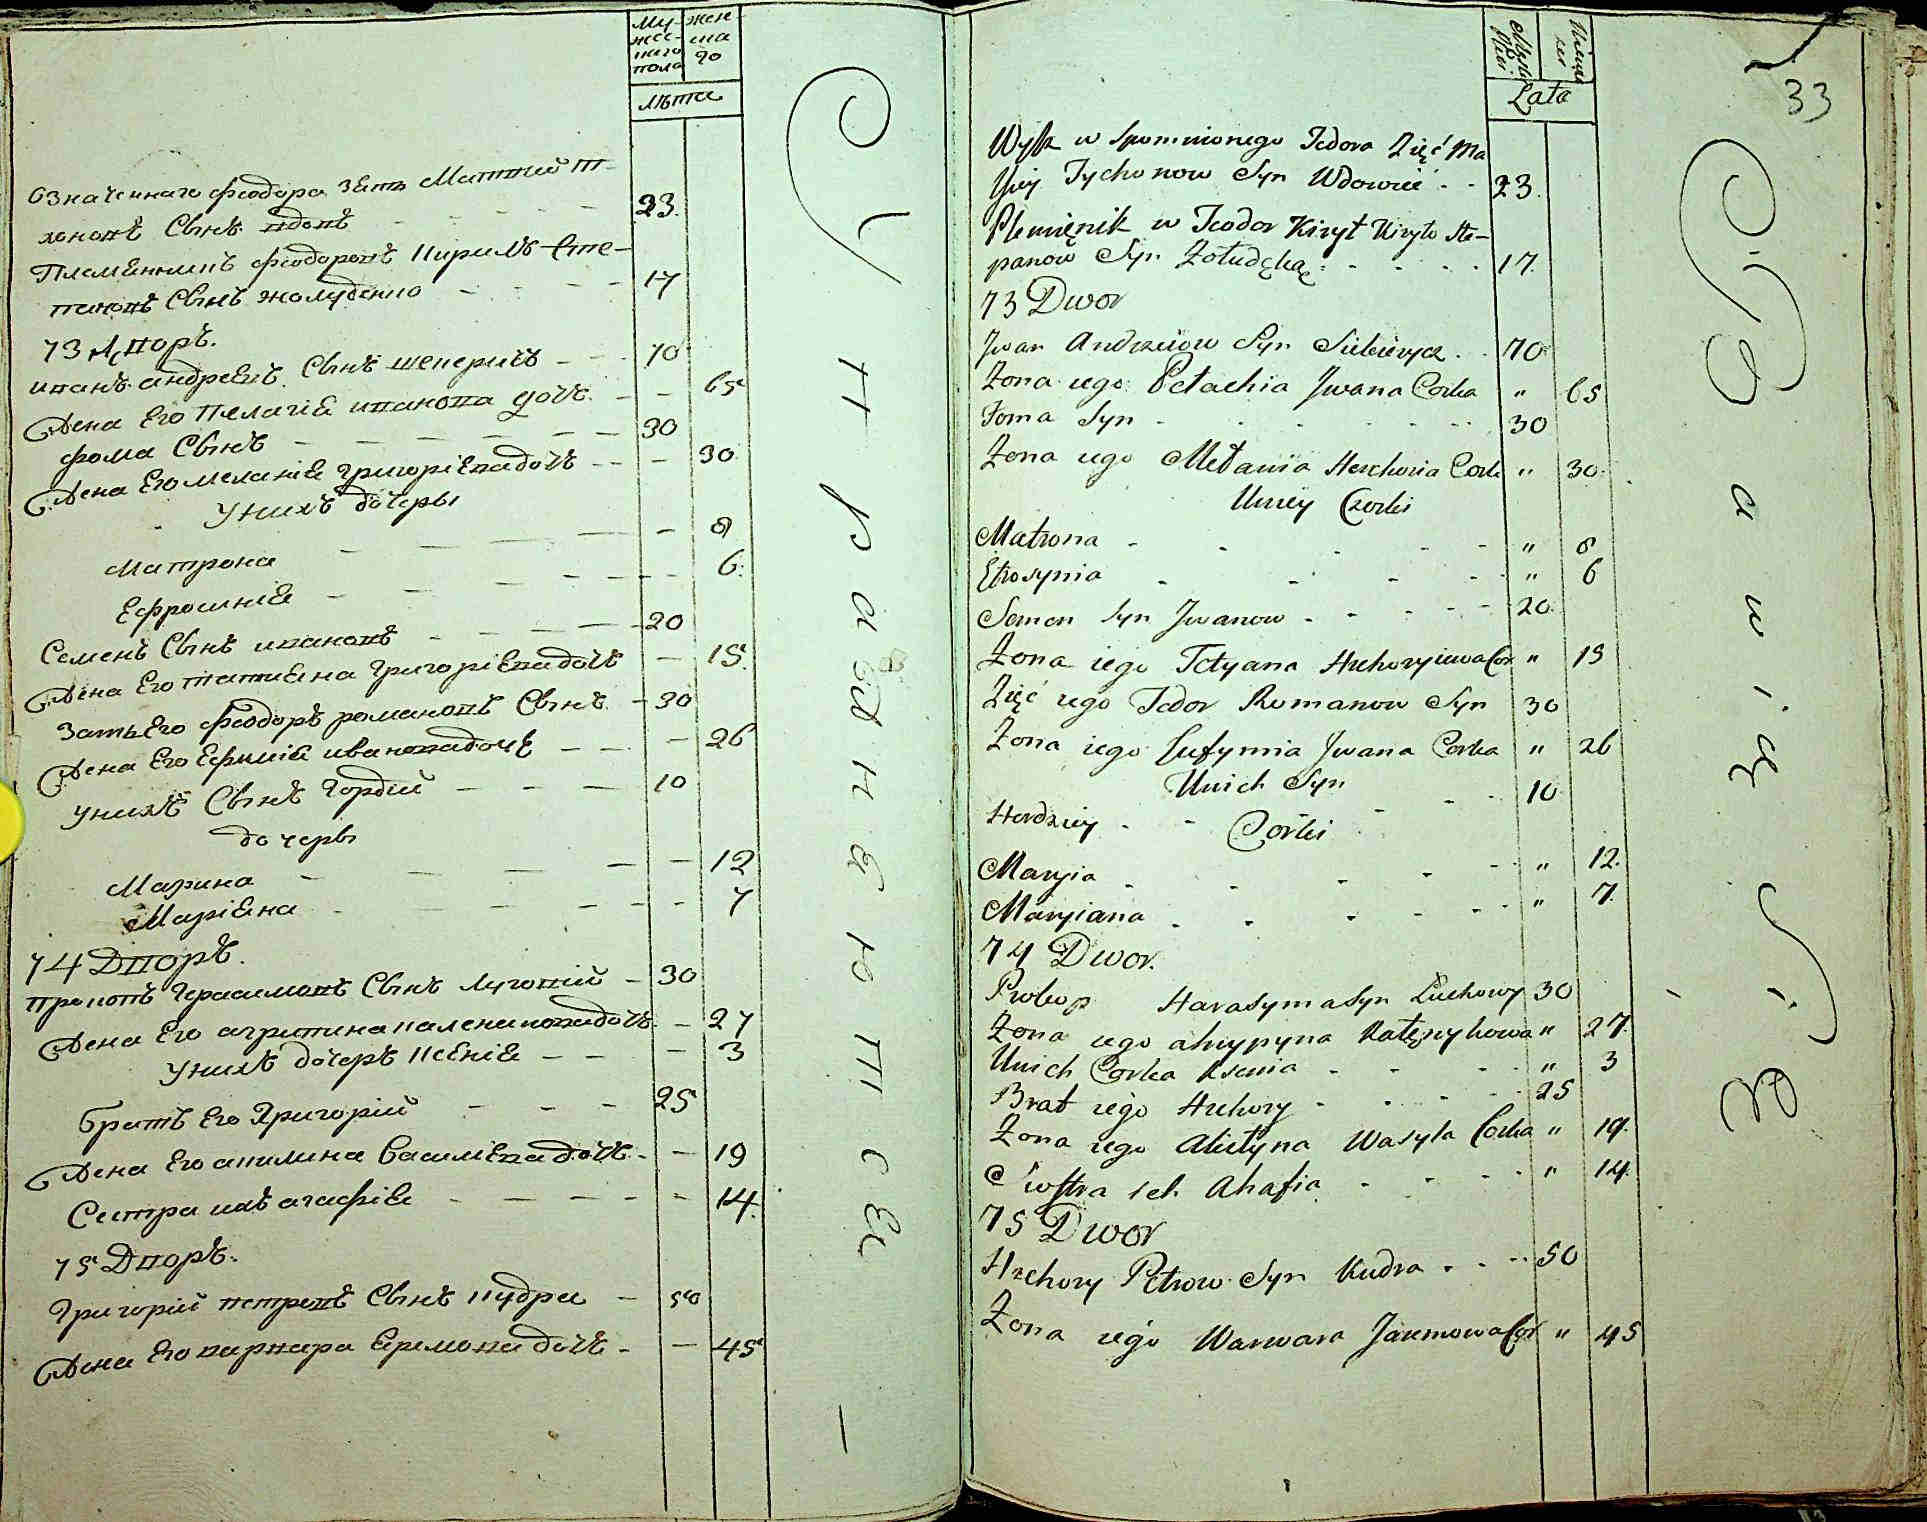 Му- жен
жес- ска
каго го
пола
лѣта
Означеннаго феодора зять Маттїй Ти-
хоновъ Сынъ вдовъ 23.
Племенникъ феодоровъ Кирилъ Сте-
пановъ Сынъ жолуденко 17
73 Дворъ.
иванъ андреевъ Сынъ шеверичъ 70
Жена Его Пелагїя иванова дочь 65
фома Сынъ 30
Жена Его меланїя григорїева дочь 30
У нихъ дочеры
Матрона 8
Ефросинїя 6.
Семенъ Сынъ ивановъ 20
Жена Его татияна григорїева дочь 15.
Зать Его феодоръ романовъ Сынъ 30
Жена Его Ефимїя иванова дочь 26
У нихъ Сынъ Гордїй 10
дочеры
Марина 12
Марїяна 7
74 Дворъ.
Прокопъ Герасимовъ Сынъ Луговїй 30
Жена Его агрипина каленикова дочь 27
У нихъ дочеръ Ксенїя 3
братъ Его Григорїй 25
Жена Его акилина Василїева дочь 19
Сестра ихъ агафїя 14.
75 Дворъ.
Григорїй петровъ Сынъ кудря 50
Жена Его варвара Еремова дочь 45
У правненют ся
33
Lata
Wyſz w spomnionego Fedora Zięć Ma
ttij Tychonow Syn Wdowieć 23.
Plemięnik w Teodor Kirył Kiryło Ste-
panow Syn Zołudęką 17.
73 Dwor
Jwan Andrziiow Syn Siewierycz 70
Zona iego Pełachia Jwana Corka " 65
Foma Syn 30
Zona iego Mełania Hrehoria Cork " 30.
Uniey Czorki
Matrona " 8
Efrosynia " 6
Semen Syn Jwanow 20.
Zona iego Tetyana Hrehoryiowa Cor " 15
Zięć iego Fedor Romanow Syn 30
Zona iego Eufymia Jwana Corka " 26
Unich Syn
Hordziey 10
Corki
Maryia " 12.
Maryiana " 7.
74 Dwor.
Prokop Harasyma Syn Łuchowy 30
Zona iego ahrypyna Kałęnykowa " 27.
Unich Corka Ksenia " 3
Brat iego Hrehory 25
Zona iego Akiłyna Wasyla Corka " 19.
Siostra ich Ahafia " 14.
75 Dwor
Hrehory Petrow Syn Kudra 50
Zona iego Warwara Jaremowa Cor " 45